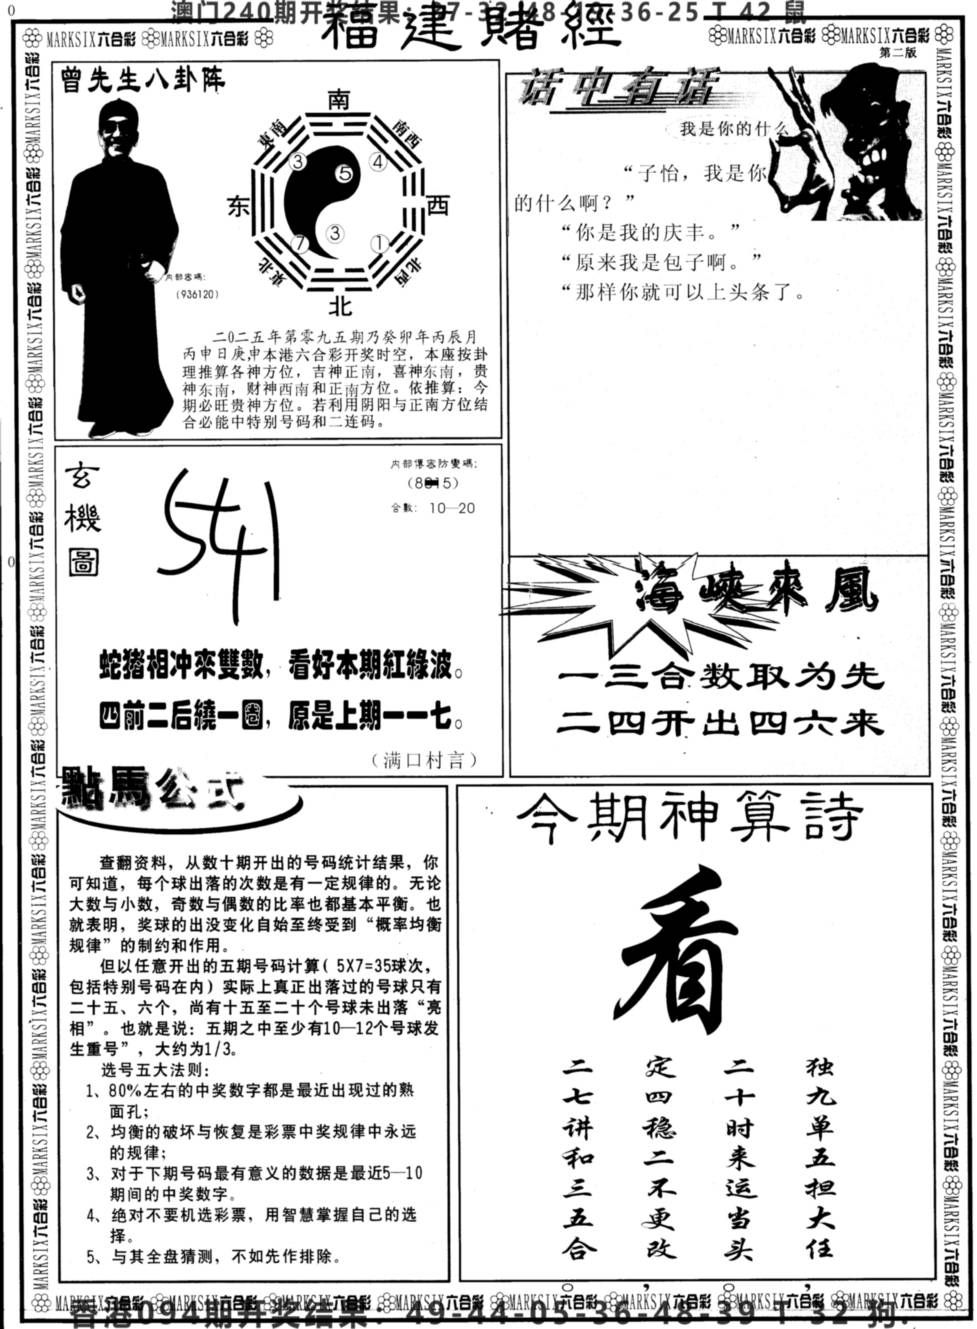 澳门240期开奖结果:
36-25 T 42 鼠
福建賭經
MARKSIX六合彩 MARKSIX六合彩
MARKSIX六合彩 MARKSIX六合彩
第二版
曾先生八卦阵
南
東南
南西
东
西
東北
北西
北
③
⑤
④
⑦
③
①
内部密碼:
(936120)
二〇二五年第零九五期乃癸卯年丙辰月
丙申日庚申本港六合彩开奖时空，本座按卦
理推算各神方位，吉神正南，喜神东南，贵
神东南，财神西南和正南方位。依推算：今
期必旺贵神方位。若利用阴阳与正南方位结
合必能中特别号码和二连码。
话中有话
我是你的什么
“子怡，我是你
的什么啊？”
“你是我的庆丰。”
“原来我是包子啊。”
“那样你就可以上头条了。
玄機圖
541
内部傳密防變碼:
合數: 10—20
蛇猪相冲來雙數，看好本期紅綠波。
四前二后繞一圈，原是上期一一七。
（满口村言）
海峽來風
一三合数取为先
二四开出四六来
點馬公式
查翻资料，从数十期开出的号码统计结果，你
可知道，每个球出落的次数是有一定规律的。无论
大数与小数，奇数与偶数的比率也都基本平衡。也
就表明，奖球的出没变化自始至终受到“概率均衡
规律”的制约和作用。
但以任意开出的五期号码计算( 5X7=35球次，
包括特别号码在内) 实际上真正出落过的号球只有
二十五、六个，尚有十五至二十个号球未出落“亮
相”。也就是说：五期之中至少有10—12个号球发
生重号”，大约为1/3。
选号五大法则:
1、80%左右的中奖数字都是最近出现过的熟
面孔;
2、均衡的破坏与恢复是彩票中奖规律中永远
的规律;
3、对于下期号码最有意义的数据是最近5—10
期间的中奖数字。
4、绝对不要机选彩票，用智慧掌握自己的选
择。
5、与其全盘猜测，不如先作排除。
今期神算詩
看
独九单五担大任，
二十时来运当头。
定四稳二不更改，
二七讲和三五合。
香港094期开奖结果: 49-44-05-36-48-39 T 32 狗.